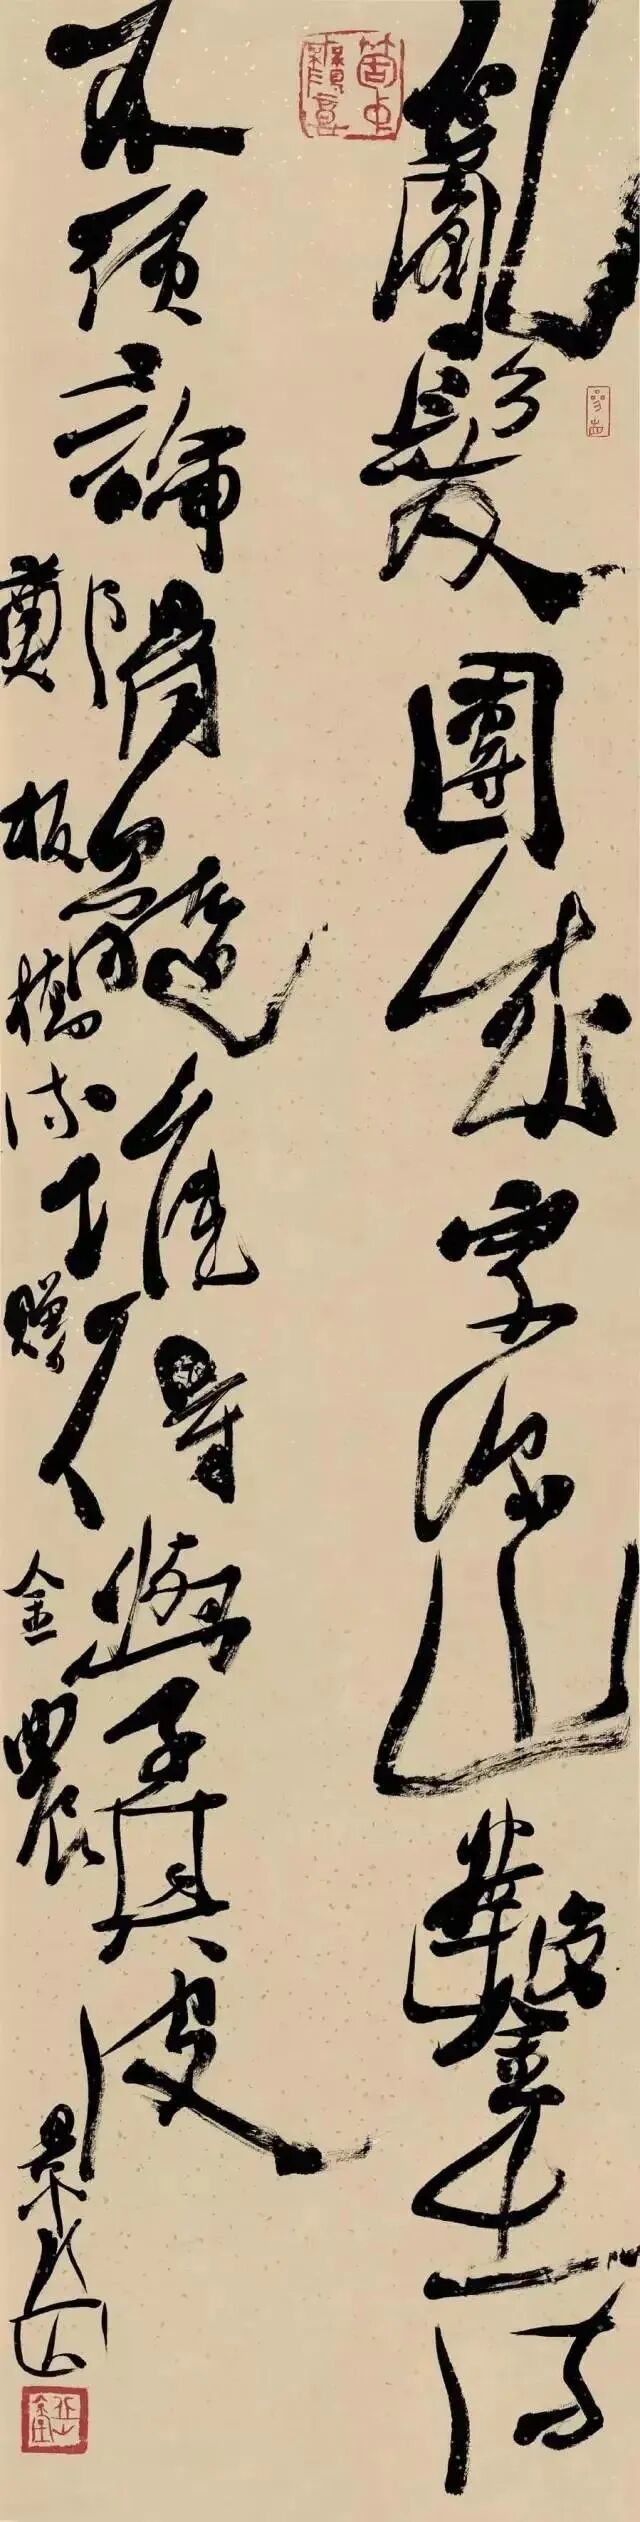 亂髮團成字深山鑿出詩
不須論骨髓誰得學其皮
鄭板橋詩贈金農